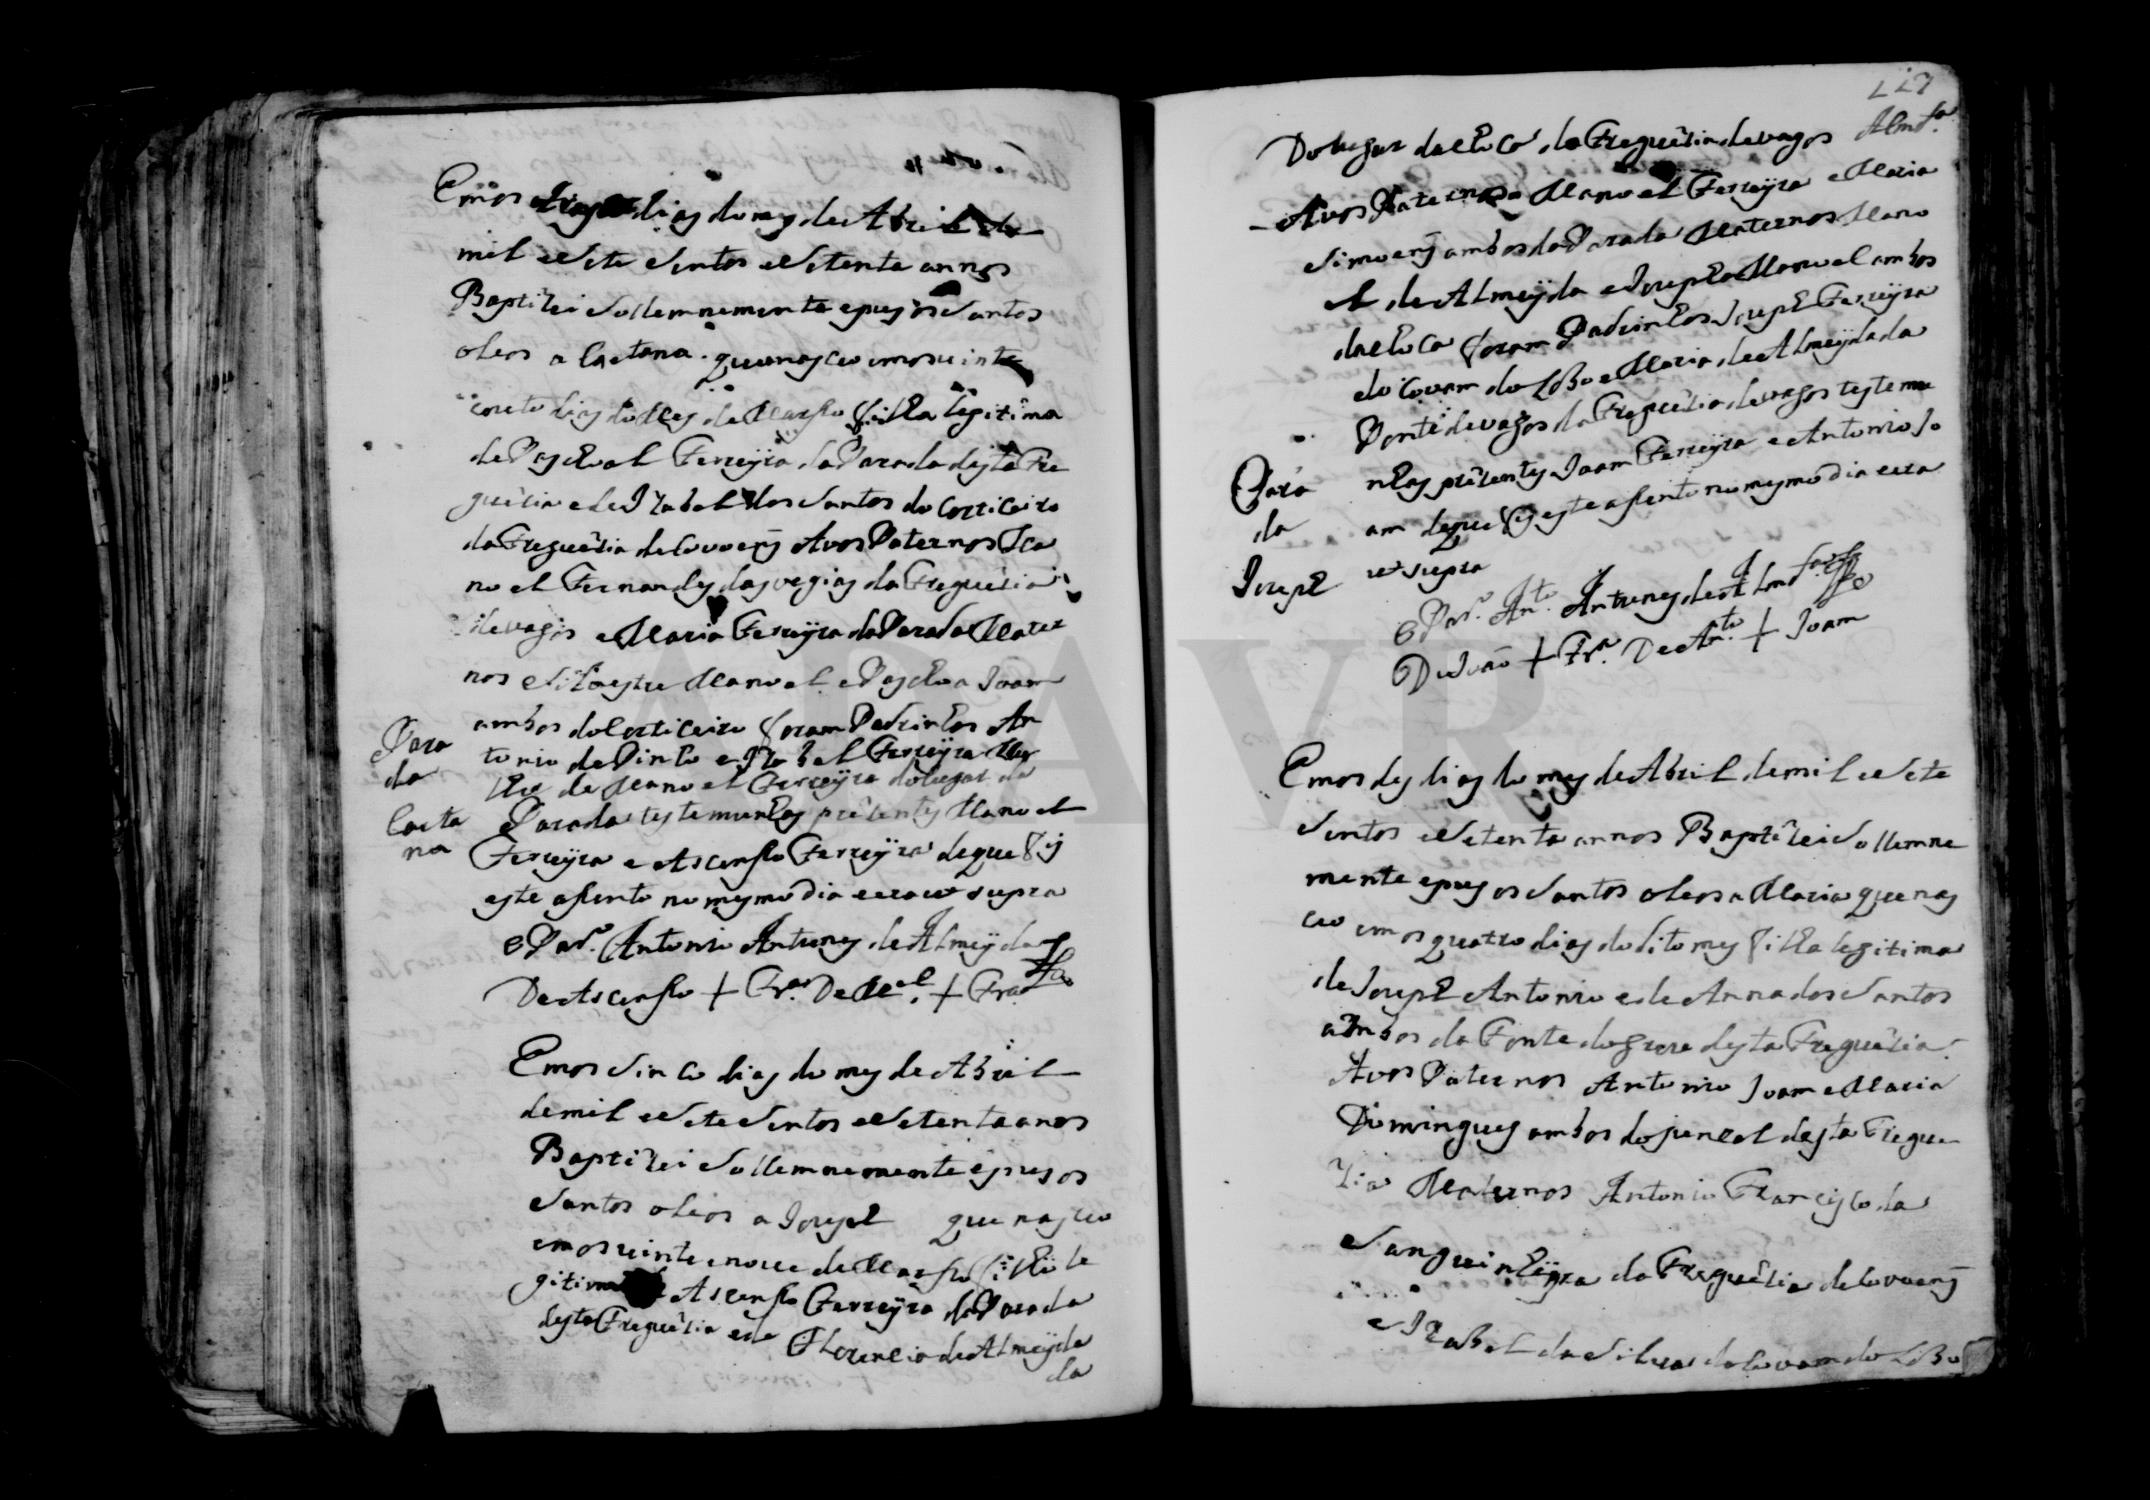 Emos dias do mes de Abril de
mil e Sete Sentos e Setenta annos
Baptizei Sollemnemente e pus os Santos
oleos a Caetana que nasceo emos vinte
e outo dias do Mes de Marsso filha legitima
de Paschoal Ferreÿra da Parada desta Fre
guezia e de Izabel dos Santos do Corticeiro
da Freguezia de Covoens Avos Paternos Ma
noel Fernandes das vegias da Freguezia
de vagos e Maria Ferreÿra da Parada Mater
nos Silvestre Manoel e Paschoa Joam
ambos do Corticeiro foram Padrinhos An
tonio de Pinho e Izabel Ferreÿra Mu
lher de Manoel Ferreÿra do lugar da
Parada testemunhas prezentes Manoel
Ferreÿra e Ascensso Ferreÿra de que fis
este assento no mesmo dia e era ut supra
Para
da
Caeta
na
O Par.º Antonio Antunes de Almeÿda
De Ascensso + Fr.ª De M.el + Fra
Emos Sinco dias do mes de Abril
de mil e Sete Sentos e Setenta anos
Baptizei Sollemnemente e pus os
Santos oleos a Joseph que nasceo
emos vinte e nove de Marsso filho le
gitimo de Ascensso Ferreÿra da Parada
desta Freguezia e de Florencia de Almeÿda
da
127
Do lugar da choca da Freguezia de vagos Almd.ª
Avos Paternos Manoel Ferreÿra e Maria
Simoens ambos da Parada Maternos Mano
el de Almeÿda e Josepha Manoel ambos
da choca foram Padrinhos Joseph Ferreÿra
do Covam do Lobo e Maria de Almeÿda da
Ponte de vagos da Freguezia de vagos testemu
nhas prezentes Joam Ferreÿra e Antonio Jo
am de que fis este assento no mesmo dia e era
ut supra
Para
da
Joseph
O Par.º An.to Antunes de Almd.ª
De Joaõ + Fr.ª De An.to + Joam
Emos des dias do mes de Abril de mil e Sete
Sentos e Setenta annos Baptizei Sollemne
mente e pus os Santos oleos a Maria que nas
ceo emos quatro dias do dito mes filha legitima
de Joseph Antonio e de Anna dos Santos
ambos da Fonte do grou desta Freguezia
Avos Paternos Antonio Joam e Maria
Domingues ambos do juncal desta Fregue
zia Maternos Antonio Francisco da
Sanguinheÿra da Freguezia de Covoens
e Izabel da Silva do Covam do Lobo
ADAVR